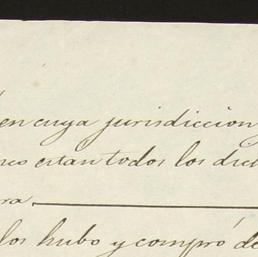 en cuya jurisdiccion
nes estan todos los
ra
los hubo y compró de